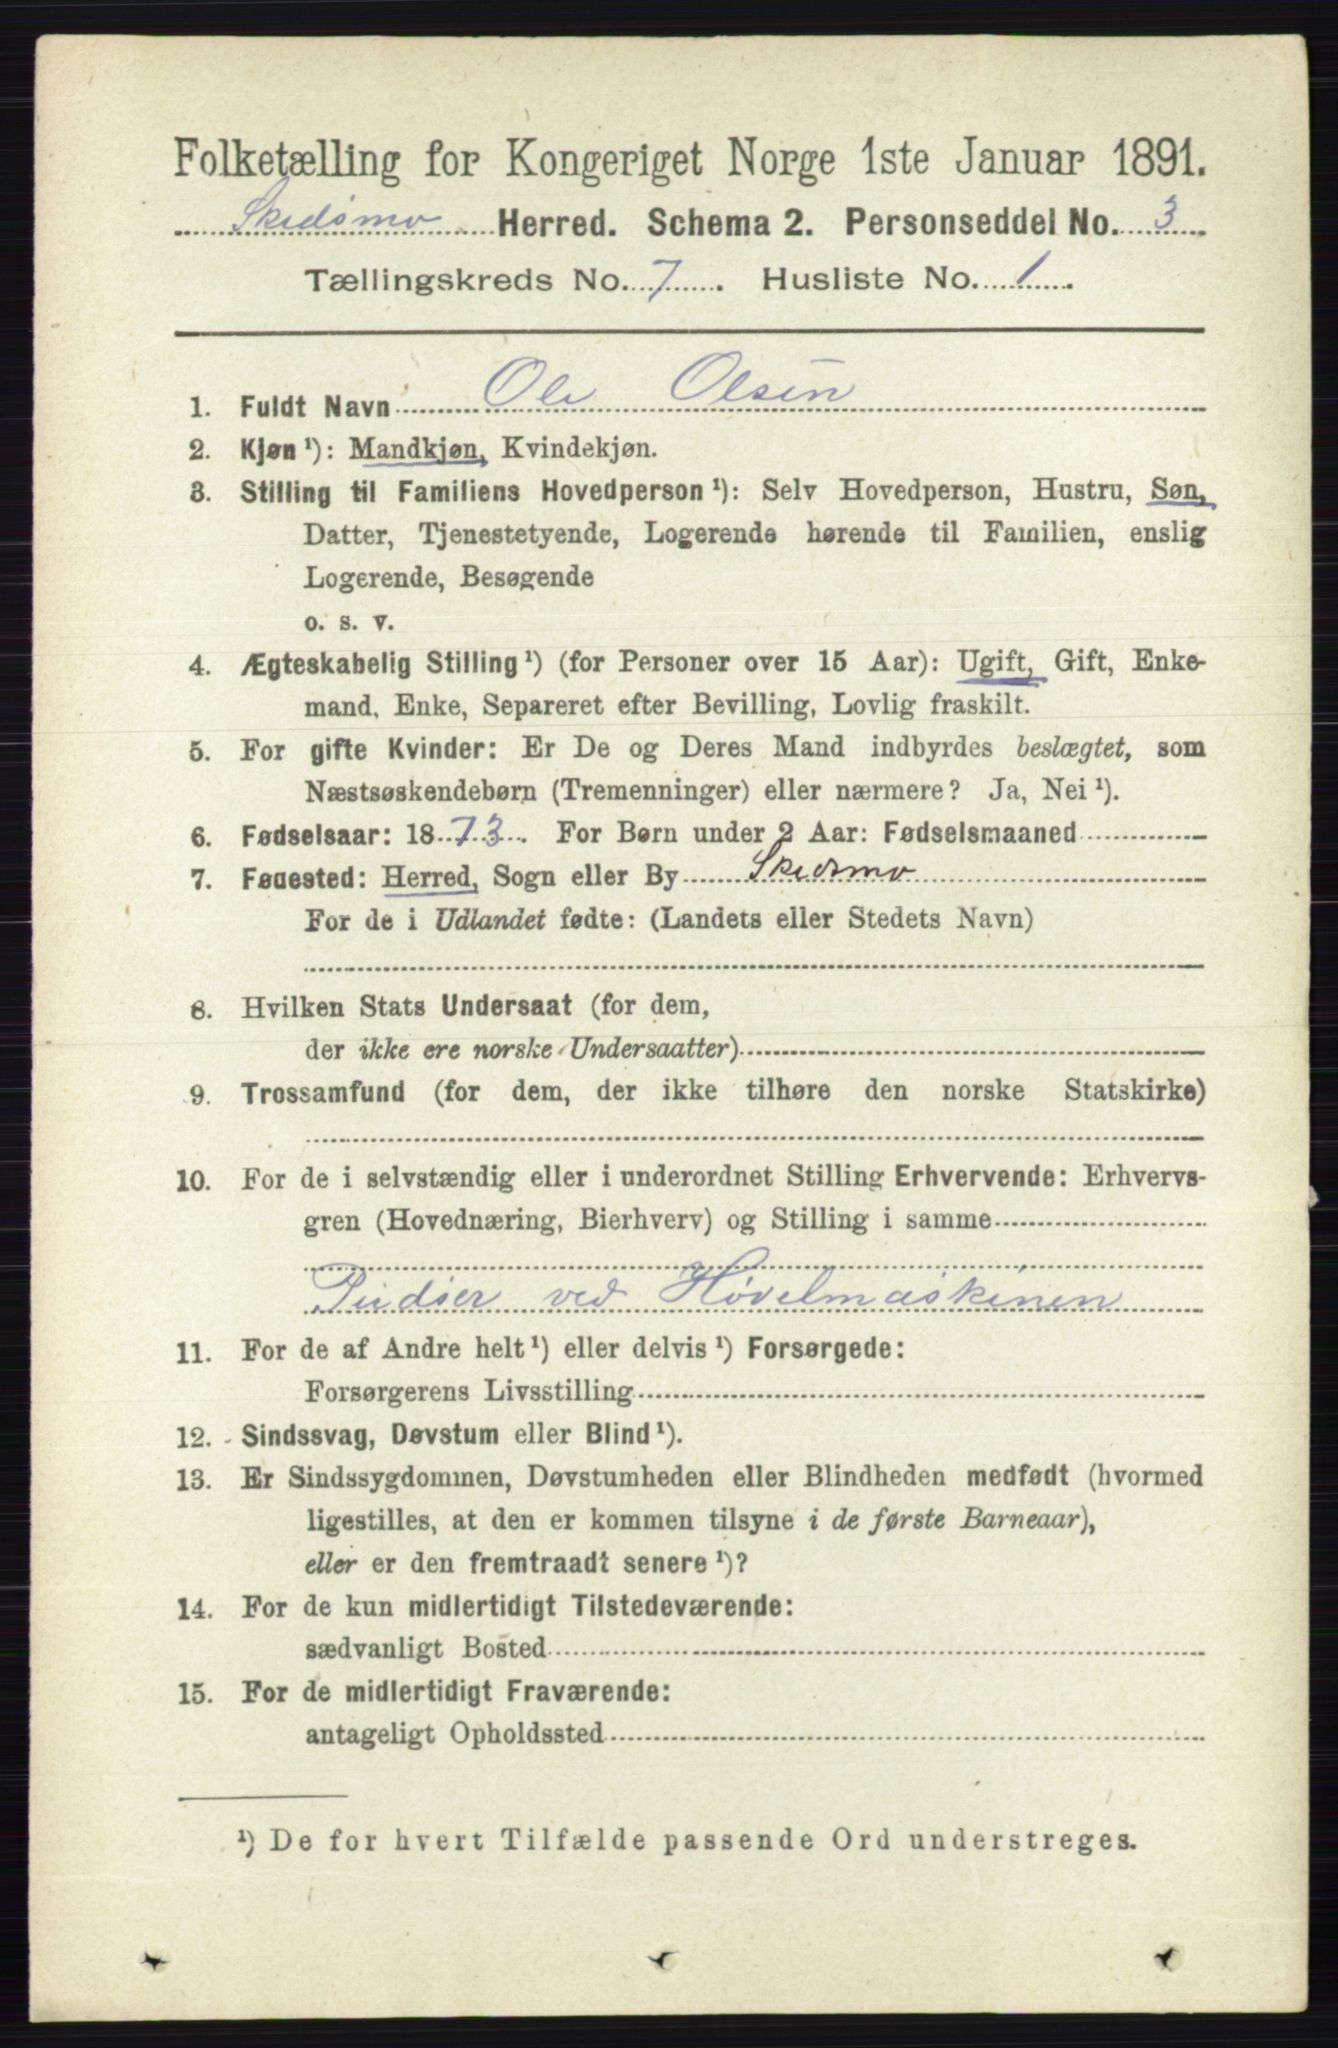 Folketælling for Kongeriget Norge 1ste Januar 1891.
Skedsmo Herred. Schema 2. Personseddel No. 3
Tællingskreds No. 7. Husliste No. 1.
1. Fuldt Navn Ole Olsen
2. Kjøn ¹): Mandkjøn, Kvindekjøn.
3. Stilling til Familiens Hovedperson ¹): Selv Hovedperson, Hustru, Søn,
Datter, Tjenestetyende, Logerende hørende til Familien, enslig
Logerende, Besøgende
o. s. v.
4. Ægteskabelig Stilling ¹) (for Personer over 15 Aar): Ugift, Gift, Enke-
mand, Enke, Separeret efter Bevilling, Lovlig fraskilt.
5. For gifte Kvinder: Er De og Deres Mand indbyrdes beslægtet, som
Næstsøskendebørn (Tremenninger) eller nærmere? Ja, Nei ¹).
6. Fødselsaar: 1873. For Børn under 2 Aar: Fødselsmaaned
7. Fødested: Herred, Sogn eller By Skedsmo
For de i Udlandet fødte: (Landets eller Stedets Navn)
8. Hvilken Stats Undersaat (for dem,
der ikke ere norske Undersaatter)
9. Trossamfund (for dem, der ikke tilhøre den norske Statskirke)
10. For de i selvstændig eller i underordnet Stilling Erhvervende: Erhvervs-
gren (Hovednæring, Bierhverv) og Stilling i samme
Pudser ved Høvelmaskinen
11. For de af Andre helt ¹) eller delvis ¹) Forsørgede:
Forsørgerens Livsstilling
12. Sindssvag, Døvstum eller Blind ¹).
13. Er Sindssygdommen, Døvstumheden eller Blindheden medfødt (hvormed
ligestilles, at den er kommen tilsyne i de første Barneaar),
eller er den fremtraadt senere ¹)?
14. For de kun midlertidigt Tilstedeværende:
sædvanligt Bosted
15. For de midlertidigt Fraværende:
antageligt Opholdssted
¹) De for hvert Tilfælde passende Ord understreges.